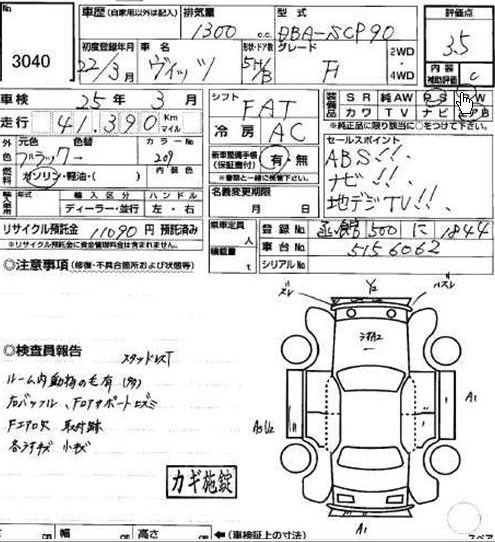 No 3040
車歴 (自家用以外は記入)
排気量 1300 c.c.
型式 DBA-SCP90
評価点 3.5
初度登録年月 22/3月
車名 ヴィッツ
形状・ドア数 5H/B
グレード F
2WD・4WD
内装補助評価 C
車検 25年 3月
走行 41,390 Km マイル
シフト FAT
冷房 AC
装備品 SR 純AW PS PW
カワ TV ナビ
※純正品に限り該当に○をつけて下さい。
外色 元色 ブラック 色替 カラーNo 209
燃料 ガソリン・軽油・( ) 内装色
新車整備手帳(保証書付) 有・無
※書類と一緒に保管下さい。
セールスポイント
ABS!!.
ナビ!!.
地デジTV!!.
輸入車用 年式 輸入区分 ハンドル
ディーラー・並行 左・右
名義変更期限 月 日
リサイクル預託金 11090円 預託済み
※リサイクル預託金に資金管理料金は含まれません。
乗車定員 人
積載量 t
登録No 函館 500 に 1844
車台No 5156062
シリアルNo
◎注意事項 (修復・不具合箇所および状態等)
ズレ Y2 ズレ
◎検査員報告
スタッドレスT
ルーム内動物の毛有(多)
右バッフル、Fロアサポートヒズミ
Fエアロ穴 取付跡
各ウすキズ 小キズ
A1
カギ施錠
A1
幅 cm 高さ cm ←(車検証上の寸法)
スペア